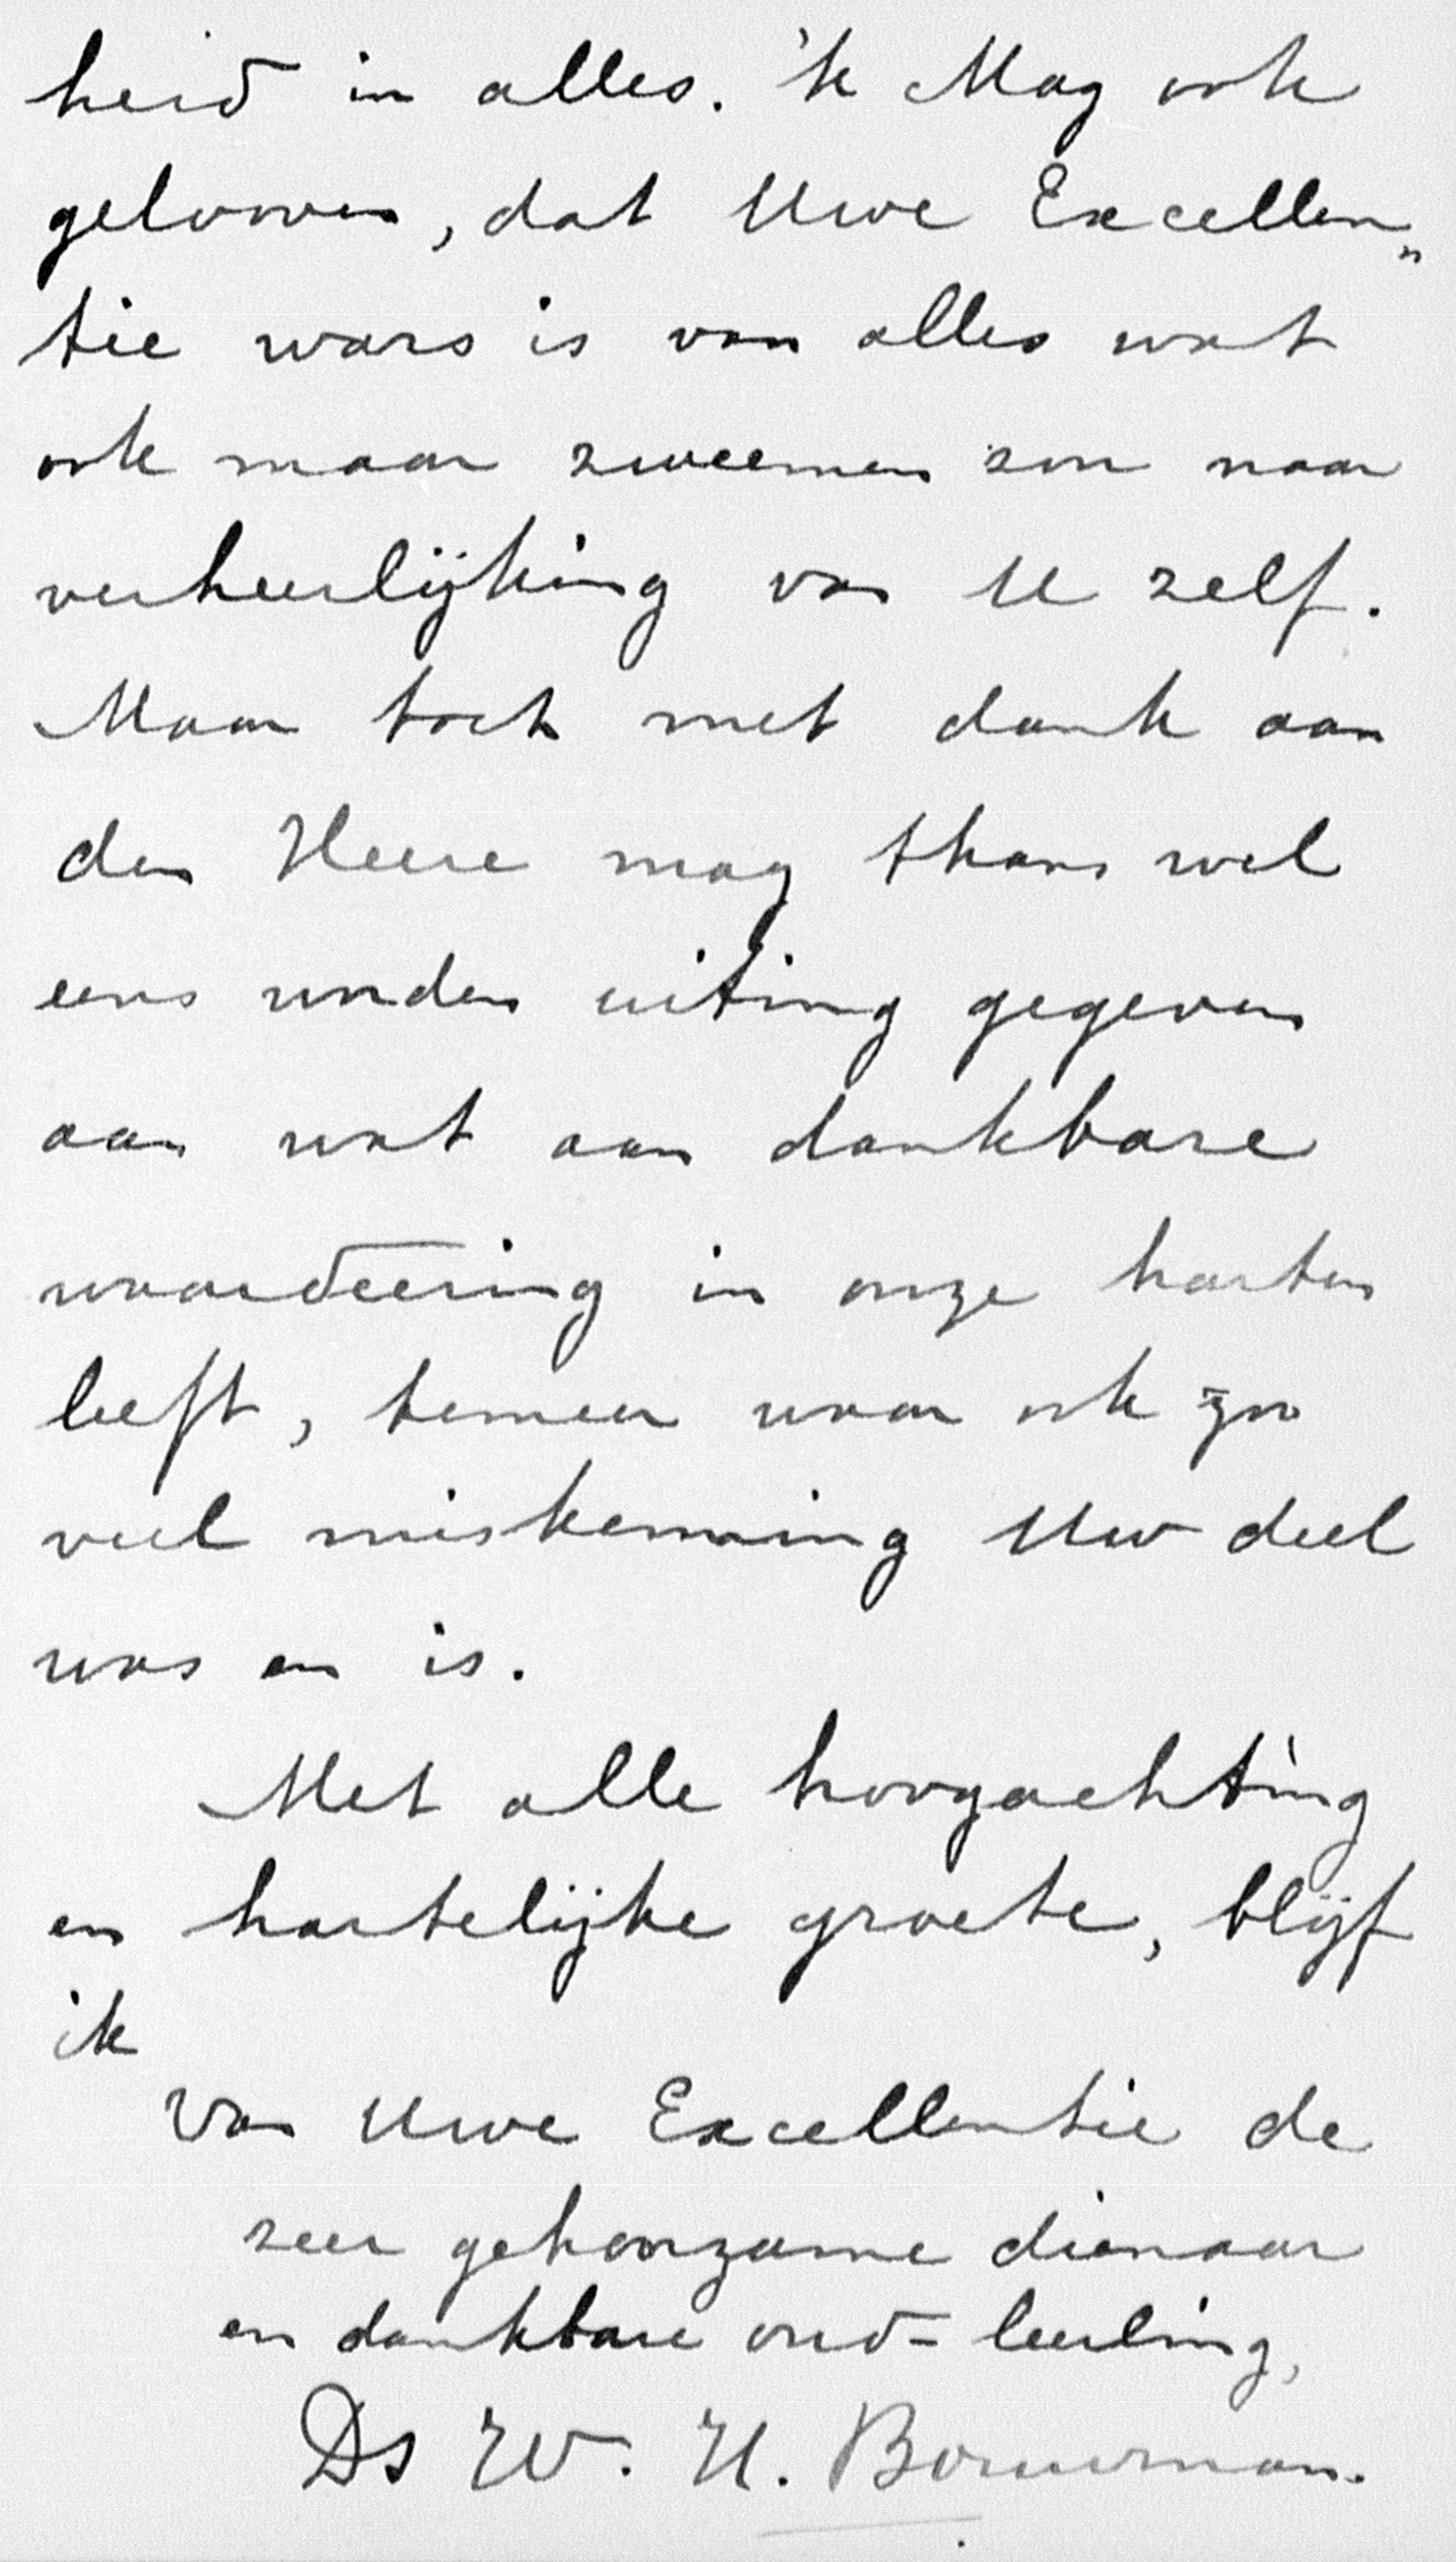 heid in alles. 'k Mag ook
gelooven, dat Uwe Excellen„
tie wars is van alles wat
ook maar zweemen zou naar
verheerlijking van U zelf.
Maar toch met dank aan
den Heere mag thans wel
eens worden uiting gegeven
aan wat aan dankbare
waardeering in onze harten
leeft, temeer waar ook zoo
veel miskenning Uw deel
was en is.
Met alle hoogachting
en hartelijke groete, blijf
ik
Van Uwe Excellentie de
zeer gehoorzame dienaar
en dankbare oud-leerling,
Ds W. H. Bouwman.